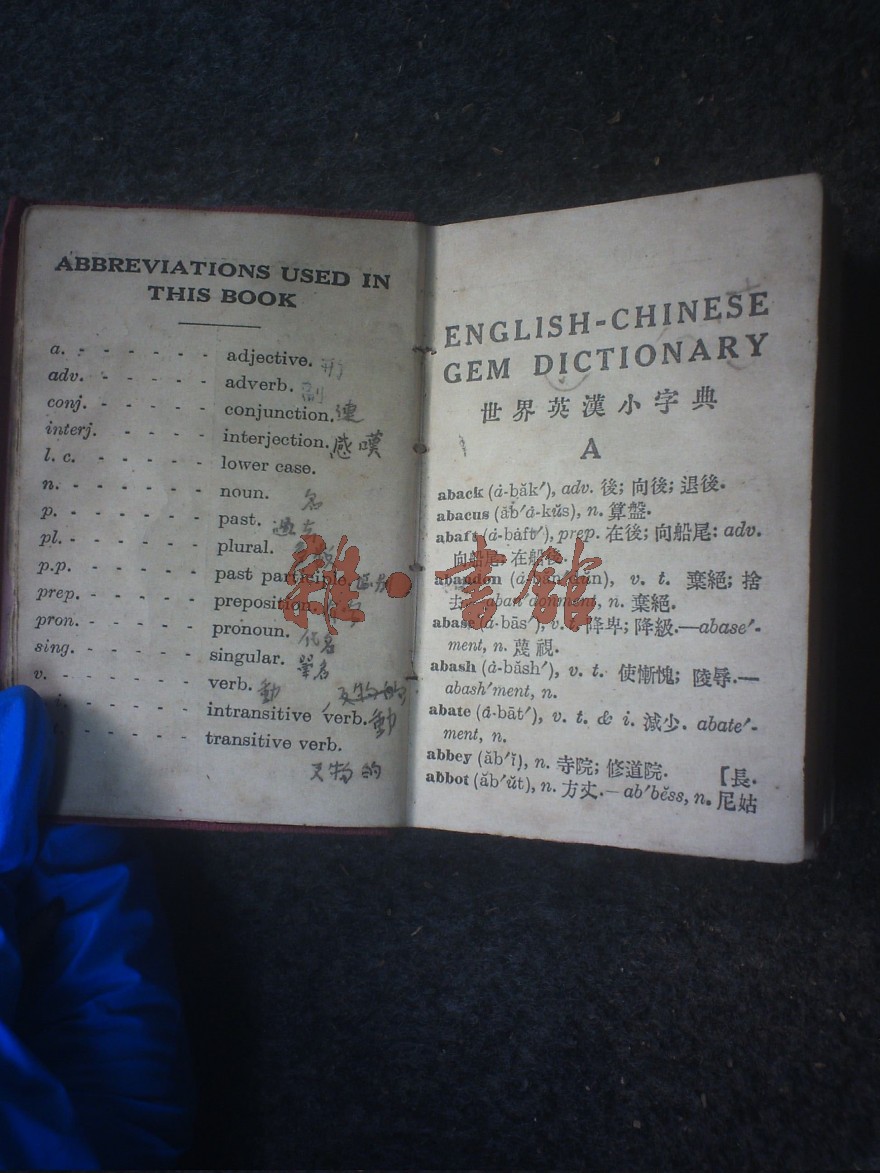 ABBREVIATIONS USED IN
THIS BOOK
a. - - - - - - adjective.
adv. - - - - - adverb. 副
conj. - - - - - conjunction. 連
interj. - - - - interjection. 感嘆
l. c. - - - - - lower case.
n. - - - - - - noun. 名
p. - - - - - - past. 過去
pl. - - - - - - plural.
p.p. - - - - - past participle.
prep. - - - - - preposition.
pron. - - - - - pronoun. 代名
sing. - - - - - singular. 單名
v. - - - - - - verb. 動 及物的
intransitive verb. 動
transitive verb.
及物的
ENGLISH-CHINESE
GEM DICTIONARY
世界英漢小字典
A
aback (ȧ-băk′), adv. 後; 向後; 退後.
abacus (ăb′ȧ-kŭs), n. 算盤.
abaft (ȧ-bȧft′), prep. 在後; 向船尾: adv.
向船尾; 在船後.
abandon (ȧ-băn′dŭn), v. t. 棄絕; 捨
去.—aban′donment, n. 棄絕.
abase (ȧ-bās′), v. t. 降卑; 降級.—abase′-
ment, n. 蔑視.
abash (ȧ-băsh′), v. t. 使慚愧; 陵辱.—
abash′ment, n.
abate (ȧ-bāt′), v. t. & i. 減少. abate′-
ment, n.
abbey (ăb′ĭ), n. 寺院; 修道院. [長.
abbot (ăb′ŭt), n. 方丈.—ab′bĕss, n. 尼姑
雜·書館